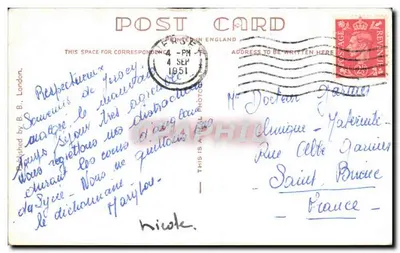 POST CARD
PRINTED IN ENGLAND
THIS SPACE FOR CORRESPONDENCE
ADDRESS TO BE WRITTEN HERE
JERSEY
4 - PM
4 SEP
1951
POSTAGE
REVENUE
Published by B. B., London.
THIS IS A REAL PHOTOGRAPH
Respectueux
Souvenir de Jersey
malgré le mauvais
temps, séjour très agréable
nous regrettons nos distractions
durant les cours d'anglais
du Lycée. Nous ne quittons
le dictionnaire
Nicole
M. Docteur
Clinique - Maternité
Rue
Saint Brieuc
France